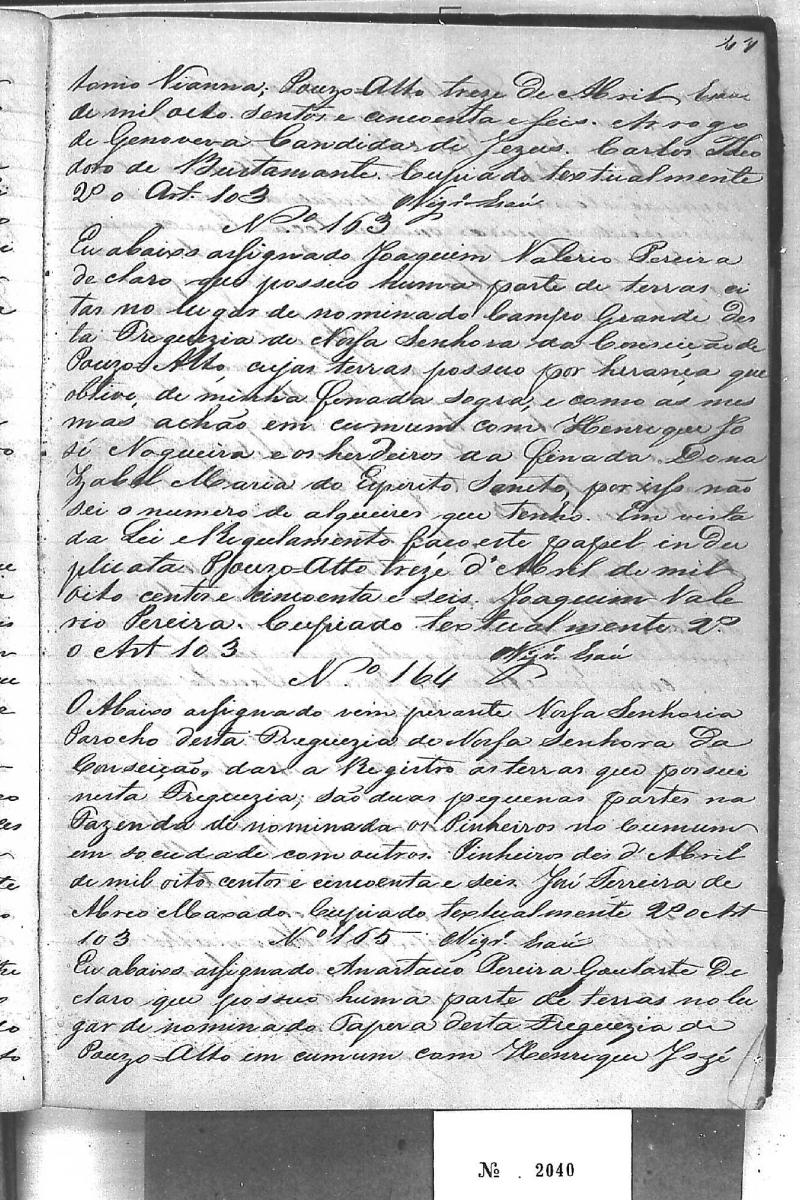 tonio Vianna; Pouzo-Alto treze de Abril
de mil oito sentos e cincoenta e seis. Arogo
de Genoveva Candida de Jezus. Carlos Theo
doro de Bustamante. Cupiado textualmente
2º o Art. 103 Vigrº Esaú
Nº 163
Eu abaixo assignado Joaquim Valerio Pereira
declaro que possuo huma parte de terras ci
tas no lugar denominado Campo Grande des
ta Freguezia de Nossa Senhora da Conseicão de
Pouzo-Alto cujas terras possuo por herança que
obtive de minha finada sogra, e como as mes
mas achão em cumum com Henrique Jo
sé Nogueira e os herdeiros da finada Dona
Izabel Maria do Espirito Sancto, por isso não
sei o numero de alqueires que tenho. Em vista
da Lei e Regulamento faco este papel in du
plicata Pouzo-Alto treze d'Abril de mil
oito centos e cincoenta e seis. Joaquim Vale
rio Pereira. Cupiado textualmente 2º
o Art 103 Vigrº Esaú
Nº 164
O Abaixo assignado vem perante Vossa Senhoria
Parocho desta Freguezia de Nossa Senhora da
Conseição, dar a Registro as terras que possue
nesta Freguezia; são duas pequenas partes na
Fazenda denominada os Pinheiros no Cumum
em sociedade com outros. Pinheiros des d'Abril
de mil oito centos e cincoenta e seis José Ferreira de
Abreo Maxado. Cupiado textualmente 2º o Art
103 Nº 165 Vigrº Esaú
Eu abaixo assignado Anastacio Pereira Goularte De
claro que possuo huma parte de terras no lu
gar denominado Tapera desta Freguezia de
Pouzo-Alto em cumum com Henrique José
Nº . 2040